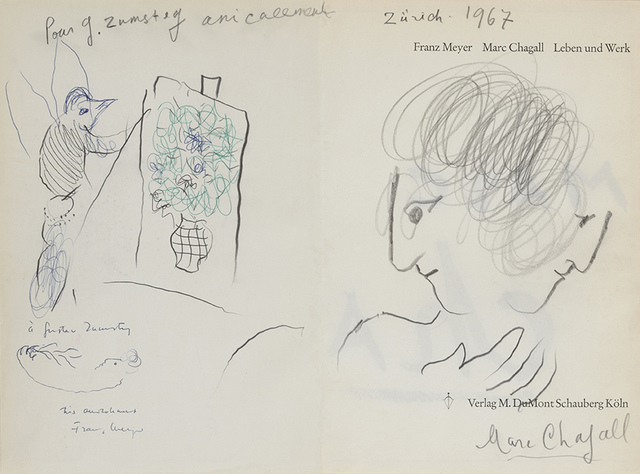 Pour G. Zumsteg amicalement
Zürich. 1967
Franz Meyer Marc Chagall Leben und Werk
à Gustav Zumsteg
Franz Meyer
Verlag M. DuMont Schauberg Köln
Marc Chagall